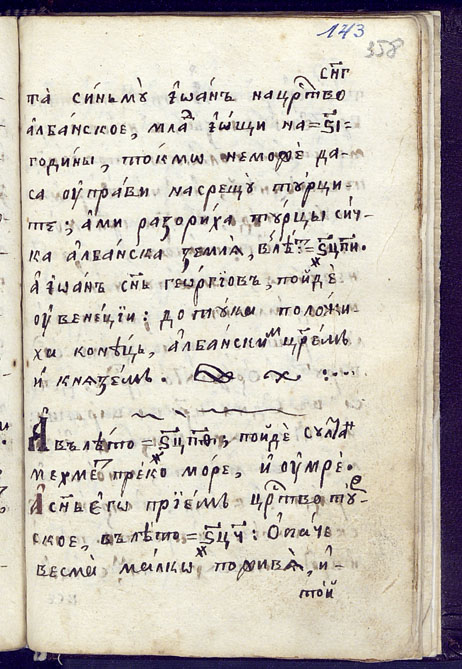 143
358
сн҃г
та̀ си́нъмꙋ̀ і҆ѡа́нъ нацр҃тво
а҆лба́нское, мла́д і҆ѡ́щи на=ѕ҃і=
годи́ны, то́кмѡ немо́же да=
са ᲂу҆пра́ви насре́щꙋ тꙋ́рци=
те; а҆́ми разори́ха тꙋ́рцы си́ч=
ка а҆лба́нска землѧ̀, влѣ́т=ѕ҃цпи.
а҆і҆ѡа́нъ сн҃ъ гео́ргїовъ, по́йдѐ
ᲂу҆вене́цїи: дотꙋ́ка поло́жи=
ха коне́цъ, а҆лба́нскимъ цр҃е́мъ
и҆ кнѧзе́мъ.
І҆ въ лѣ́то =ѕ҃цпѳ, по́йдѐ сꙋлта́н
мехме́т пре́ко мо́ре, и҆ ᲂу҆мре́.
А҆ сн҃ъ є҆гѡ̀ прїе́мъ цр҃тво тꙋр=
ское, въ лѣ́то=ѕ҃цч҃: Ѻ҆па́че
весма̀ ма́лкѡ поживѧ̀, и҆=
то́й